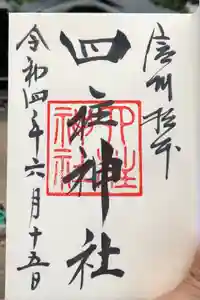 信州松本
四柱神社
四柱神社
令和四年六月十五日